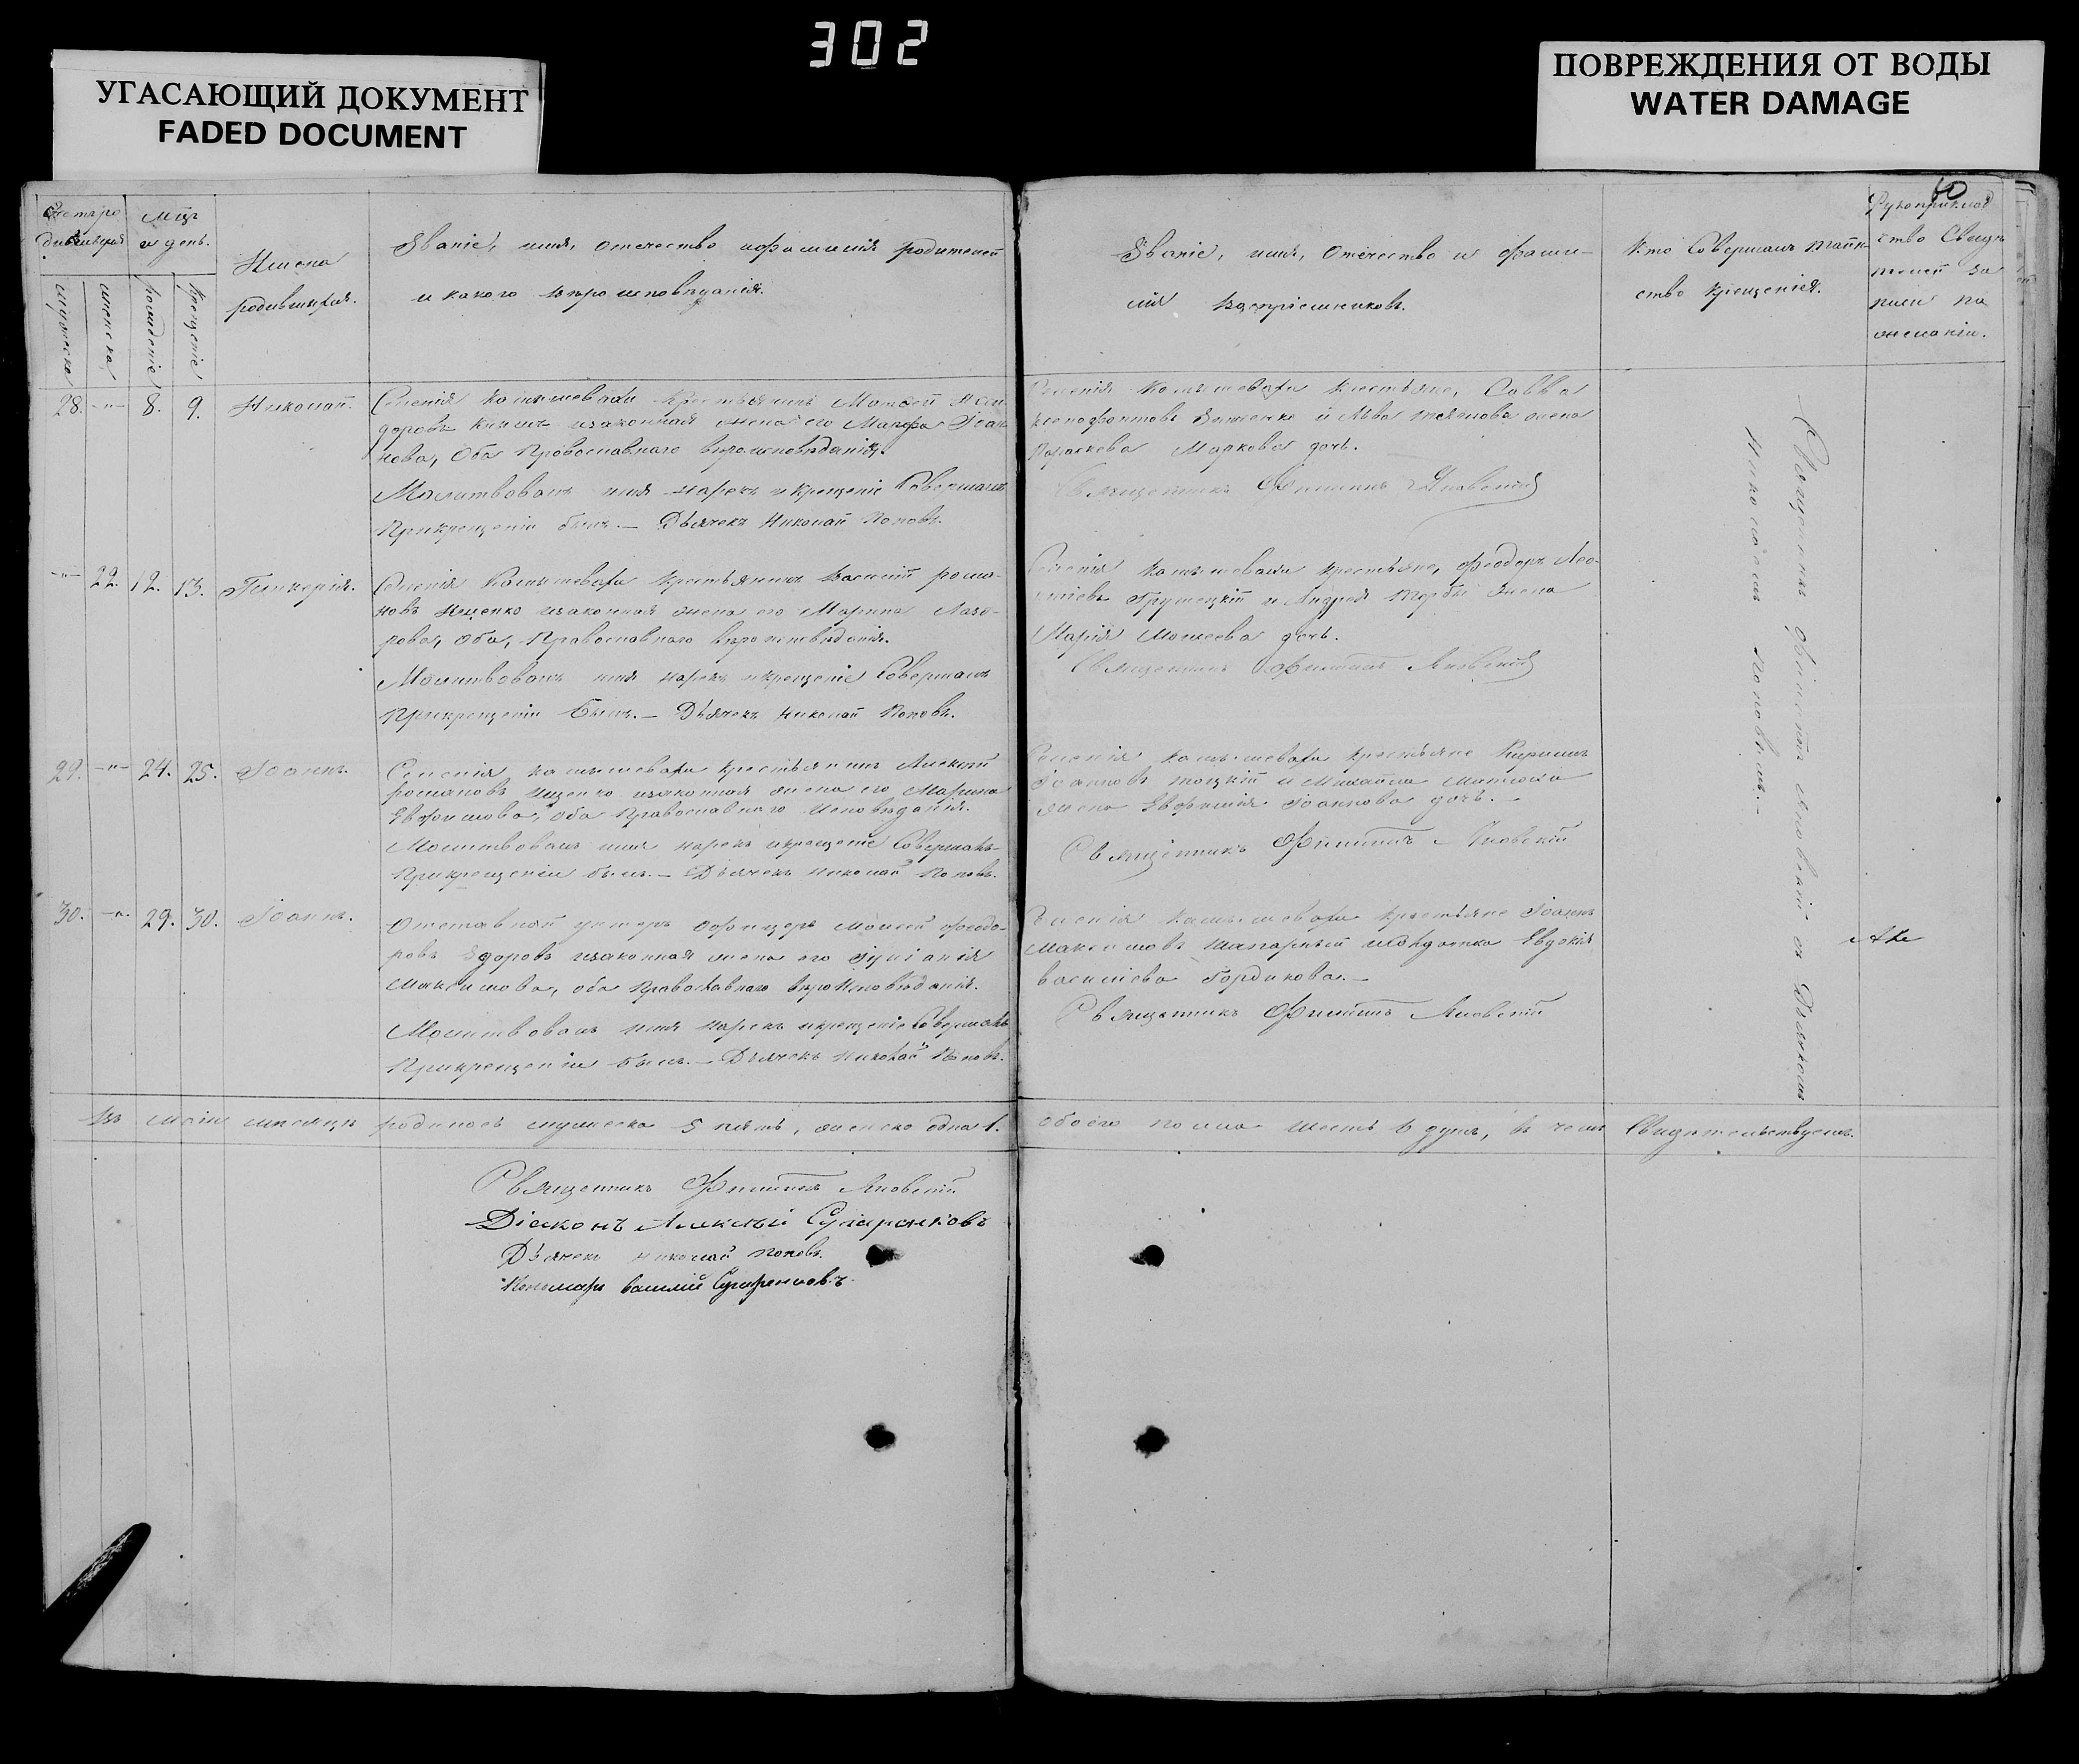 302
УГАСАЮЩИЙ ДОКУМЕНТ
FADED DOCUMENT
ПОВРЕЖДЕНИЯ ОТ ВОДЫ
WATER DAMAGE
60
Счетъ ро
дившихся
мужеска
женска
Мцъ
и день.
рожденіе
крещеніе
Имена
родившихся.
Званіе, имя, отечество и фамилія родителей
и какого вѣроисповѣданія.
Званіе, имя, Отечество и фами-
лія Воспріемниковъ.
Кто Совершалъ таин-
ство крещенія.
Рукоприклад
ство Свидѣ
телей за
писи по
желанію.
28. -"- 8. 9. Николай.
Селенія Камышевахи крестьянинъ Моисей
доровъ изаконная жена его Марфа Іоан
нова, Оба Православнаго вѣроисповѣданія.
Молитвовалъ имя нарекъ и крещеніе Совершалъ
Прикрещеніи былъ. — Дьячекъ Николай Поповъ.
Селенія Камышевахи крестьяне, Савва
Ксенофонтовъ и Льва жена
Параскева Маркова дочь.
Священникъ Филиппъ Яновскій
-"- 22. 12. 13. Гликерія.
Селенія Камышевахи крестьянинъ Василій рома-
новъ Ищенко изаконная жена его Марина Лаза-
рова, оба, Православнаго вѣроисповѣданія.
Молитвовалъ имя нарекъ и крещеніе Совершалъ
Прикрещеніи былъ. — Дьячекъ Николай Поповъ.
Селенія Камышевахи крестьяне, Феодоръ Лео-
нтіевъ Грушецкій и Андрея жена
Марія Моисеева дочь.
Священникъ Филиппъ Яновскій
29. -"- 24. 25. Іоаннъ.
Селенія камышевахи крестьянинъ Алексѣй
романовъ Ищенко изаконная жена его Марина
Евфимова, оба Православнаго Исповѣданія.
Молитвовалъ имя нарекъ и крещеніе Совершалъ
Прикрещеніи былъ. — Дьячекъ Николай Поповъ.
Селенія Камышевахи крестьяне Кириллъ
Іоанновъ и Михаила
жена Евфимія Іоаннова дочь. —
Священникъ Филиппъ Яновскій
30. -"- 29. 30. Іоаннъ.
Отставной унтеръ Офицеръ Моисей Феодо-
ровъ Здоровъ изаконная жена его Іуліанія
Максимова, оба Православнаго вѣроИсповѣданія.
Молитвовалъ имя нарекъ и крещеніе Совершалъ
Прикрещеніи былъ. — Дьячекъ Николай Поповъ.
Селенія Камышевахи крестьяне Іоаннъ
Максимовъ Евдокія
василіева Гордикова. —
Священникъ Филиппъ Яновскій
Священникъ Филиппъ Яновскій съ Дьячкомъ
Николаемъ Поповымъ. —
Въ маіи мѣсяцѣ родилось мужеска 5 пять, женска одна 1. обоего пола шесть 6 душъ, въ чемъ Свидѣтельствуемъ.
Священникъ Филиппъ Яновскій
Діаконъ Алексѣй
Дьячекъ Николай Поповъ.
Пономарь Василій